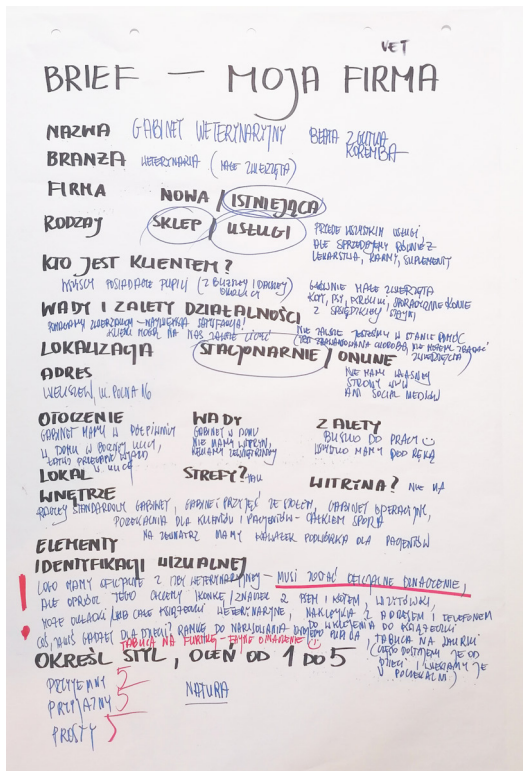 VET
BRIEF — MOJA FIRMA
NAZWA GABINET WETERYNARYJNY BEATA
BRANŻA WETERYNARIA (MAŁE ZWIERZĘTA)
FIRMA NOWA / ISTNIEJĄCA
RODZAJ SKLEP / USŁUGI
PRZEDE WSZYSTKIM USŁUGI,
ALE SPRZEDAJEMY RÓWNIEŻ
LEKARSTWA, KARMY, SUPLEMENTY
KTO JEST KLIENTEM?
WSZYSCY POSIADACZE PUPILI (Z BLIŻSZEJ I DALSZEJ OKOLICY)
GŁÓWNIE MAŁE ZWIERZĘTA
KOTY, PSY, KRÓLIKI, SPORADYCZNIE KONIE
Z SĄSIEDZKIEJ
WADY I ZALETY DZIAŁALNOŚCI
POMAGAMY ZWIERZĘTOM – NAJWIĘKSZA SATYSFAKCJA!
KLIENCI MOGĄ NA NAS ZAWSZE LICZYĆ
NIE ZAWSZE JESTEŚMY W STANIE POMÓC
LOKALIZACJA STACJONARNIE / ONLINE
NIE MAMY WŁASNEJ
STRONY WWW
ANI SOCIAL MEDIÓW
ADRES
UL. POLNA 16
OTOCZENIE
GABINET MAMY W
W DOMU W BOCZNEJ ULICY,
WADY
GABINET W DOMU
NIE MAMY WITRYN,
REKLAMY ZEWNĘTRZNEJ
ZALETY
BLISKO DO PRACY ☺
WSZYSTKO MAMY POD RĘKĄ
LOKAL STREFY? WITRYNA? NIE MA
WNĘTRZE
STANDARDOWY GABINET, GABINET PRZYJĘĆ ZE STOŁEM, GABINET OPERACYJNY,
POCZEKALNIA DLA KLIENTÓW I PACJENTÓW – CAŁKIEM SPORA
NA ZEWNĄTRZ MAMY KAWAŁEK PODWÓRKA DLA PACJENTÓW
ELEMENTY
IDENTYFIKACJI WIZUALNEJ
! LOGO MAMY OFICJALNE Z IZBY WETERYNARYJNEJ – MUSI ZOSTAĆ OFICJALNE OZNACZENIE,
ALE OPRÓCZ TEGO CHCEMY IKONKĘ / ZNACZEK Z PSEM I KOTEM, WIZYTÓWKI,
MOŻE OKŁADKI / LUB CAŁE KSIĄŻECZKI WETERYNARYJNE, NAKLEJKA Z ADRESEM I TELEFONEM
DO WKLEJENIA DO KSIĄŻECZKI
COŚ, JAKIŚ GADŻET DLA DZIECI? RAMKĘ DO NARYSOWANIA SWOJEGO PUPILA
TABLICA NA FURTKĘ – FAJNE OZNACZENIE ☺
TABLICA NA LAURKI
(CZĘSTO DOSTAJEMY JE OD
DZIECI I WIESZAMY JE
W POCZEKALNI)
OKREŚL STYL, OCEŃ OD 1 DO 5
PRZYJEMNY 5
PRZYJAZNY 5
PROSTY 5
NATURA